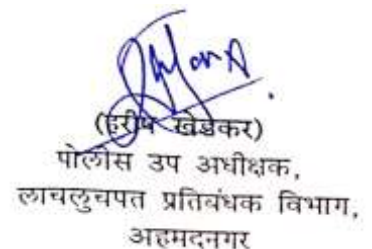 (हरीष खेडकर)
पोलीस उप अधीक्षक,
लाचलुचपत प्रतिबंधक विभाग,
अहमदनगर